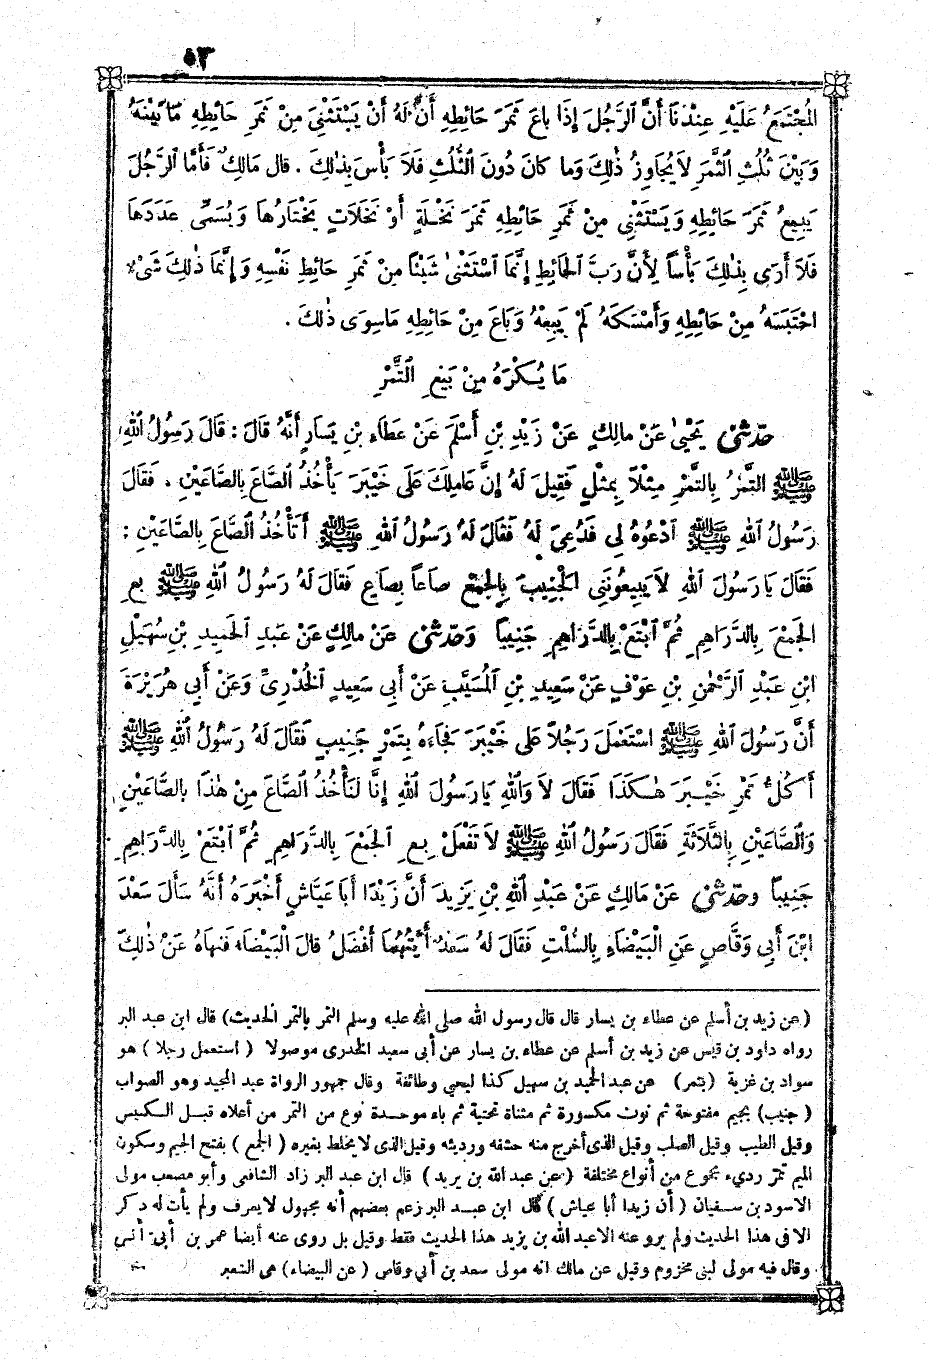 ٥٣
الْمُجْتَمَعُ عَلَيْهِ عِنْدَنَا أَنَّ الرَّجُلَ إِذَا بَاعَ ثَمَرَ حَائِطِهِ أَنَّ لَهُ أَنْ يَسْتَثْنِىَ مِنْ ثَمَرِ حَائِطِهِ مَا بَيْنَهُ
وَبَيْنَ ثُلُثِ الثَّمَرِ لَا يُجَاوِزُ ذٰلِكَ وَمَا كَانَ دُونَ الثُّلُثِ فَلَا بَأْسَ بِذٰلِكَ . قال مَالِكٌ فَأَمَّا الرَّجُلُ
يَبِيعُ ثَمَرَ حَائِطِهِ وَيَسْتَثْنِى مِنْ ثَمَرِ حَائِطِهِ ثَمَرَ نَخْلَةٍ أَوْ نَخَلَاتٍ يَخْتَارُهَا وَيُسَمِّى عَدَدَهَا
فَلَا أَرَى بِذٰلِكَ بَأْسًا لِأَنَّ رَبَّ الْحَائِطِ إِنَّمَا اسْتَثْنَى شَيْئًا مِنْ ثَمَرِ حَائِطِ نَفْسِهِ وَإِنَّمَا ذٰلِكَ شَىْءٌ
احْتَبَسَهُ مِنْ حَائِطِهِ وَأَمْسَكَهُ لَمْ يَبِعْهُ وَبَاعَ مِنْ حَائِطِهِ مَا سِوَى ذٰلكَ .
مَا يُكْرَهُ مِنْ بَيْعِ التَّمْرِ
حَدَّثَنِى يَحْيَىٰ عَنْ مالِكٍ عَنْ زَيْدِ بْنِ أَسْلَمَ عَنْ عَطَاءِ بْنِ يَسَارٍ أَنَّهُ قَالَ : قَالَ رَسُولُ اللهِ
ﷺ التَّمْرُ بِالتَّمْرِ مِثْلًا بِمِثْلٍ فَقِيلَ لَهُ إِنَّ عَامِلَكَ عَلَى خَيْبَرَ يَأْخُذُ الصَّاعَ بِالصَّاعَيْنِ . فَقَالَ
رَسُولُ اللهِ ﷺ ادْعُوهُ لِى فَدُعِىَ لَهُ فَقَالَ لَهُ رَسُولُ اللهِ ﷺ أَتَأْخُذُ الصَّاعَ بِالصَّاعَيْنِ :
فَقَالَ يَا رَسُولَ اللهِ لَا يَبِيعُونَنِى الْجَنِيبَ بِالْجَمْعِ صَاعًا بِصَاعٍ فَقَالَ لَهُ رَسُولُ اللهِ ﷺ بِعِ
الْجَمْعَ بِالدَّرَاهِمِ ثُمَّ ابْتَعْ بِالدَّرَاهِمِ جَنِيبًا وَحَدَّثَنِى عَنْ مالِكٍ عَنْ عَبْدِ الْحَمِيدِ بْنِ سُهَيْلِ
ابْنِ عَبْدِ الرَّحْمٰنِ بْنِ عَوْفٍ عَنْ سَعِيدِ بْنِ الْمُسَيَّبِ عَنْ أَبِى سَعِيدٍ الْخُدْرِىِّ وَعَنْ أَبِى هُرَيْرَةَ
أَنَّ رَسُولَ اللهِ ﷺ اسْتَعْمَلَ رَجُلًا عَلَى خَيْبَرَ فَجَاءَهُ بِتَمْرٍ جَنِيبٍ فَقَالَ لَهُ رَسُولُ اللهِ ﷺ
أَكُلُّ تَمْرِ خَيْبَرَ هٰكَذَا فَقَالَ لَا وَاللهِ يَا رَسُولَ اللهِ إِنَّا لَنَأْخُذُ الصَّاعَ مِنْ هٰذَا بِالصَّاعَيْنِ
وَالصَّاعَيْنِ بِالثَّلَاثَةِ فَقَالَ رَسُولُ اللهِ ﷺ لَا تَفْعَلْ بِعِ الْجَمْعَ بِالدَّرَاهِمِ ثُمَّ ابْتَعْ بِالدَّرَاهِمِ
جَنِيبًا وَحَدَّثَنِى عَنْ مَالِكٍ عَنْ عَبْدِ اللهِ بْنِ يَزِيدَ أَنَّ زَيْدًا أَبَا عَيَّاشٍ أَخْبَرَهُ أَنَّهُ سَأَلَ سَعْدَ
ابْنَ أَبِى وَقَّاصٍ عَنِ الْبَيْضَاءِ بِالسُّلْتِ فَقَالَ لَهُ سَعْدٌ أَيَّتُهُمَا أَفْضَلُ قَالَ الْبَيْضَاءُ فَنَهَاهُ عَنْ ذٰلِكَ
(عن زيد بن أسلم عن عطاء بن يسار قال قال رسول الله صلى الله عليه وسلم التمر بالتمر الحديث) قال ابن عبد البر
رواه داود بن قيس عن زيد بن أسلم عن عطاء بن يسار عن أبى سعيد الخدرى موصولا (استعمل رجلا) هو
سواد بن غزية (بتمر) عن عبد الحميد بن سهيل كذا ليحيى وطائفة وقال جمهور الرواة عبد المجيد وهو الصواب
(جنيب) بجيم مفتوحة ثم نون مكسورة ثم مثناة تحتية ثم باء موحدة نوع من التمر من أعلاه قبل الكبيس
وقيل الطيب وقيل الصلب وقيل الذى أخرج منه حشفه ورديئه وقيل الذى لا يخلط بغيره (الجمع) بفتح الجيم وسكون
الميم تمر ردىء مجموع من أنواع مختلفة (عن عبد الله بن يزيد) قال ابن عبد البر زاد الشافعى وأبو مصعب مولى
الاسود بن سفيان (أن زيدا أبا عياش) قال ابن عبد البر زعم بعضهم أنه مجهول لا يعرف ولم يأت له ذكر
الا فى هذا الحديث ولم يرو عنه الا عبد الله بن يزيد هذا الحديث فقط وقيل بل روى عنه أيضا عمر بن أبى أنس
وقال فيه مولى لبنى مخزوم وقيل عن مالك انه مولى سعد بن أبى وقاص (عن البيضاء) هى الشعير